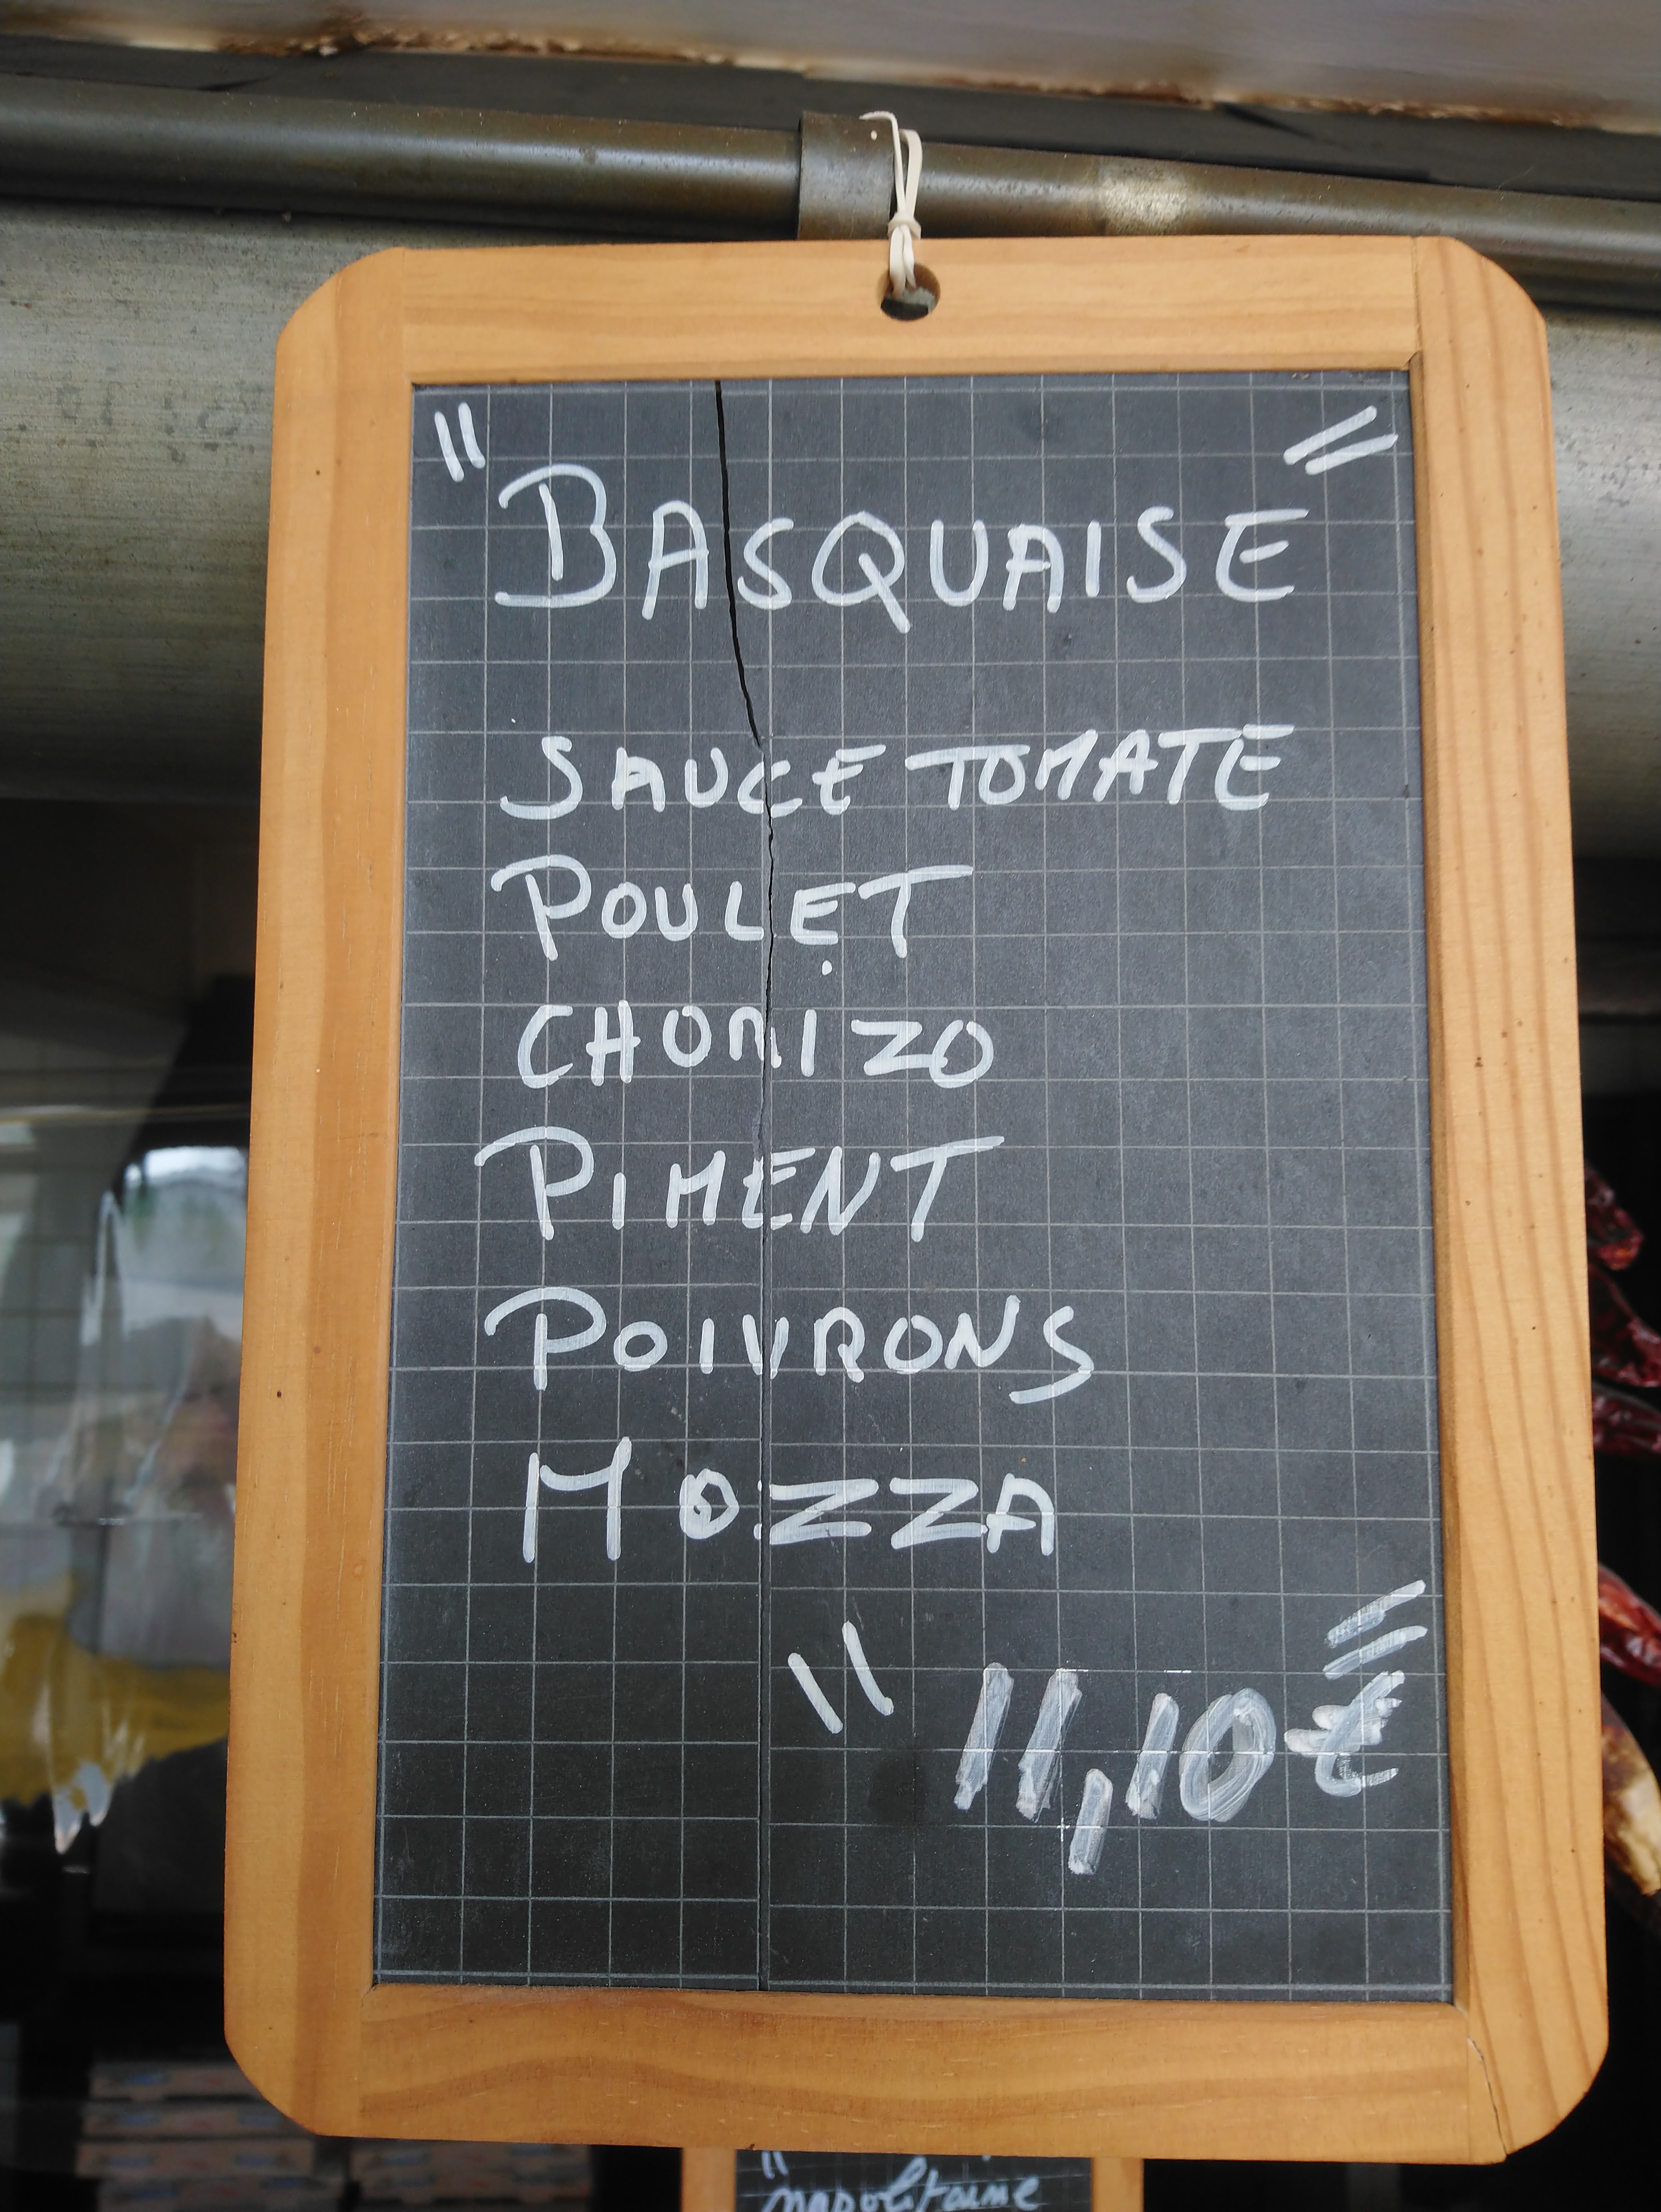 "BASQUAISE"
SAUCE TOMATE
POULET
CHORIZO
PIMENT
POIVRONS
MOZZA
"11,10€"
"napolitaine